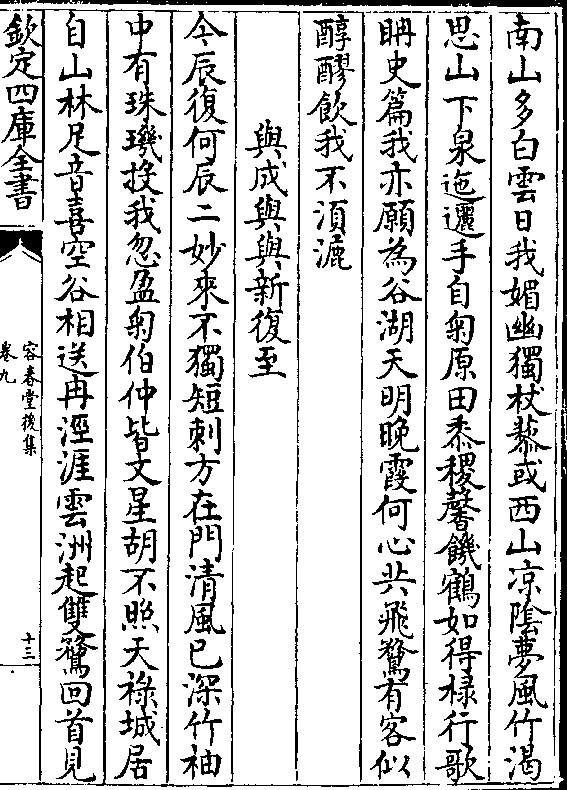 南山多白雲日我媚幽獨杖藜或西山凉隂夢風竹渴
思山下泉迤邐手自匊原田黍稷馨饑鶴如得椂行歌
㫤史篇我亦願為谷湖天明晚霞何心共飛鶩有客似
醇醪飲我不湏漉
與成與與新復至
今辰復何辰二妙來不獨短刺方在門清風已深竹袖
中有珠璣投我忽盈匊伯仲皆文星胡不照天祿城居
自山林足音喜空谷相送冉涇涯雲洲起雙鶩回首見
欽定四庫全書
容春堂後集
卷九
十三